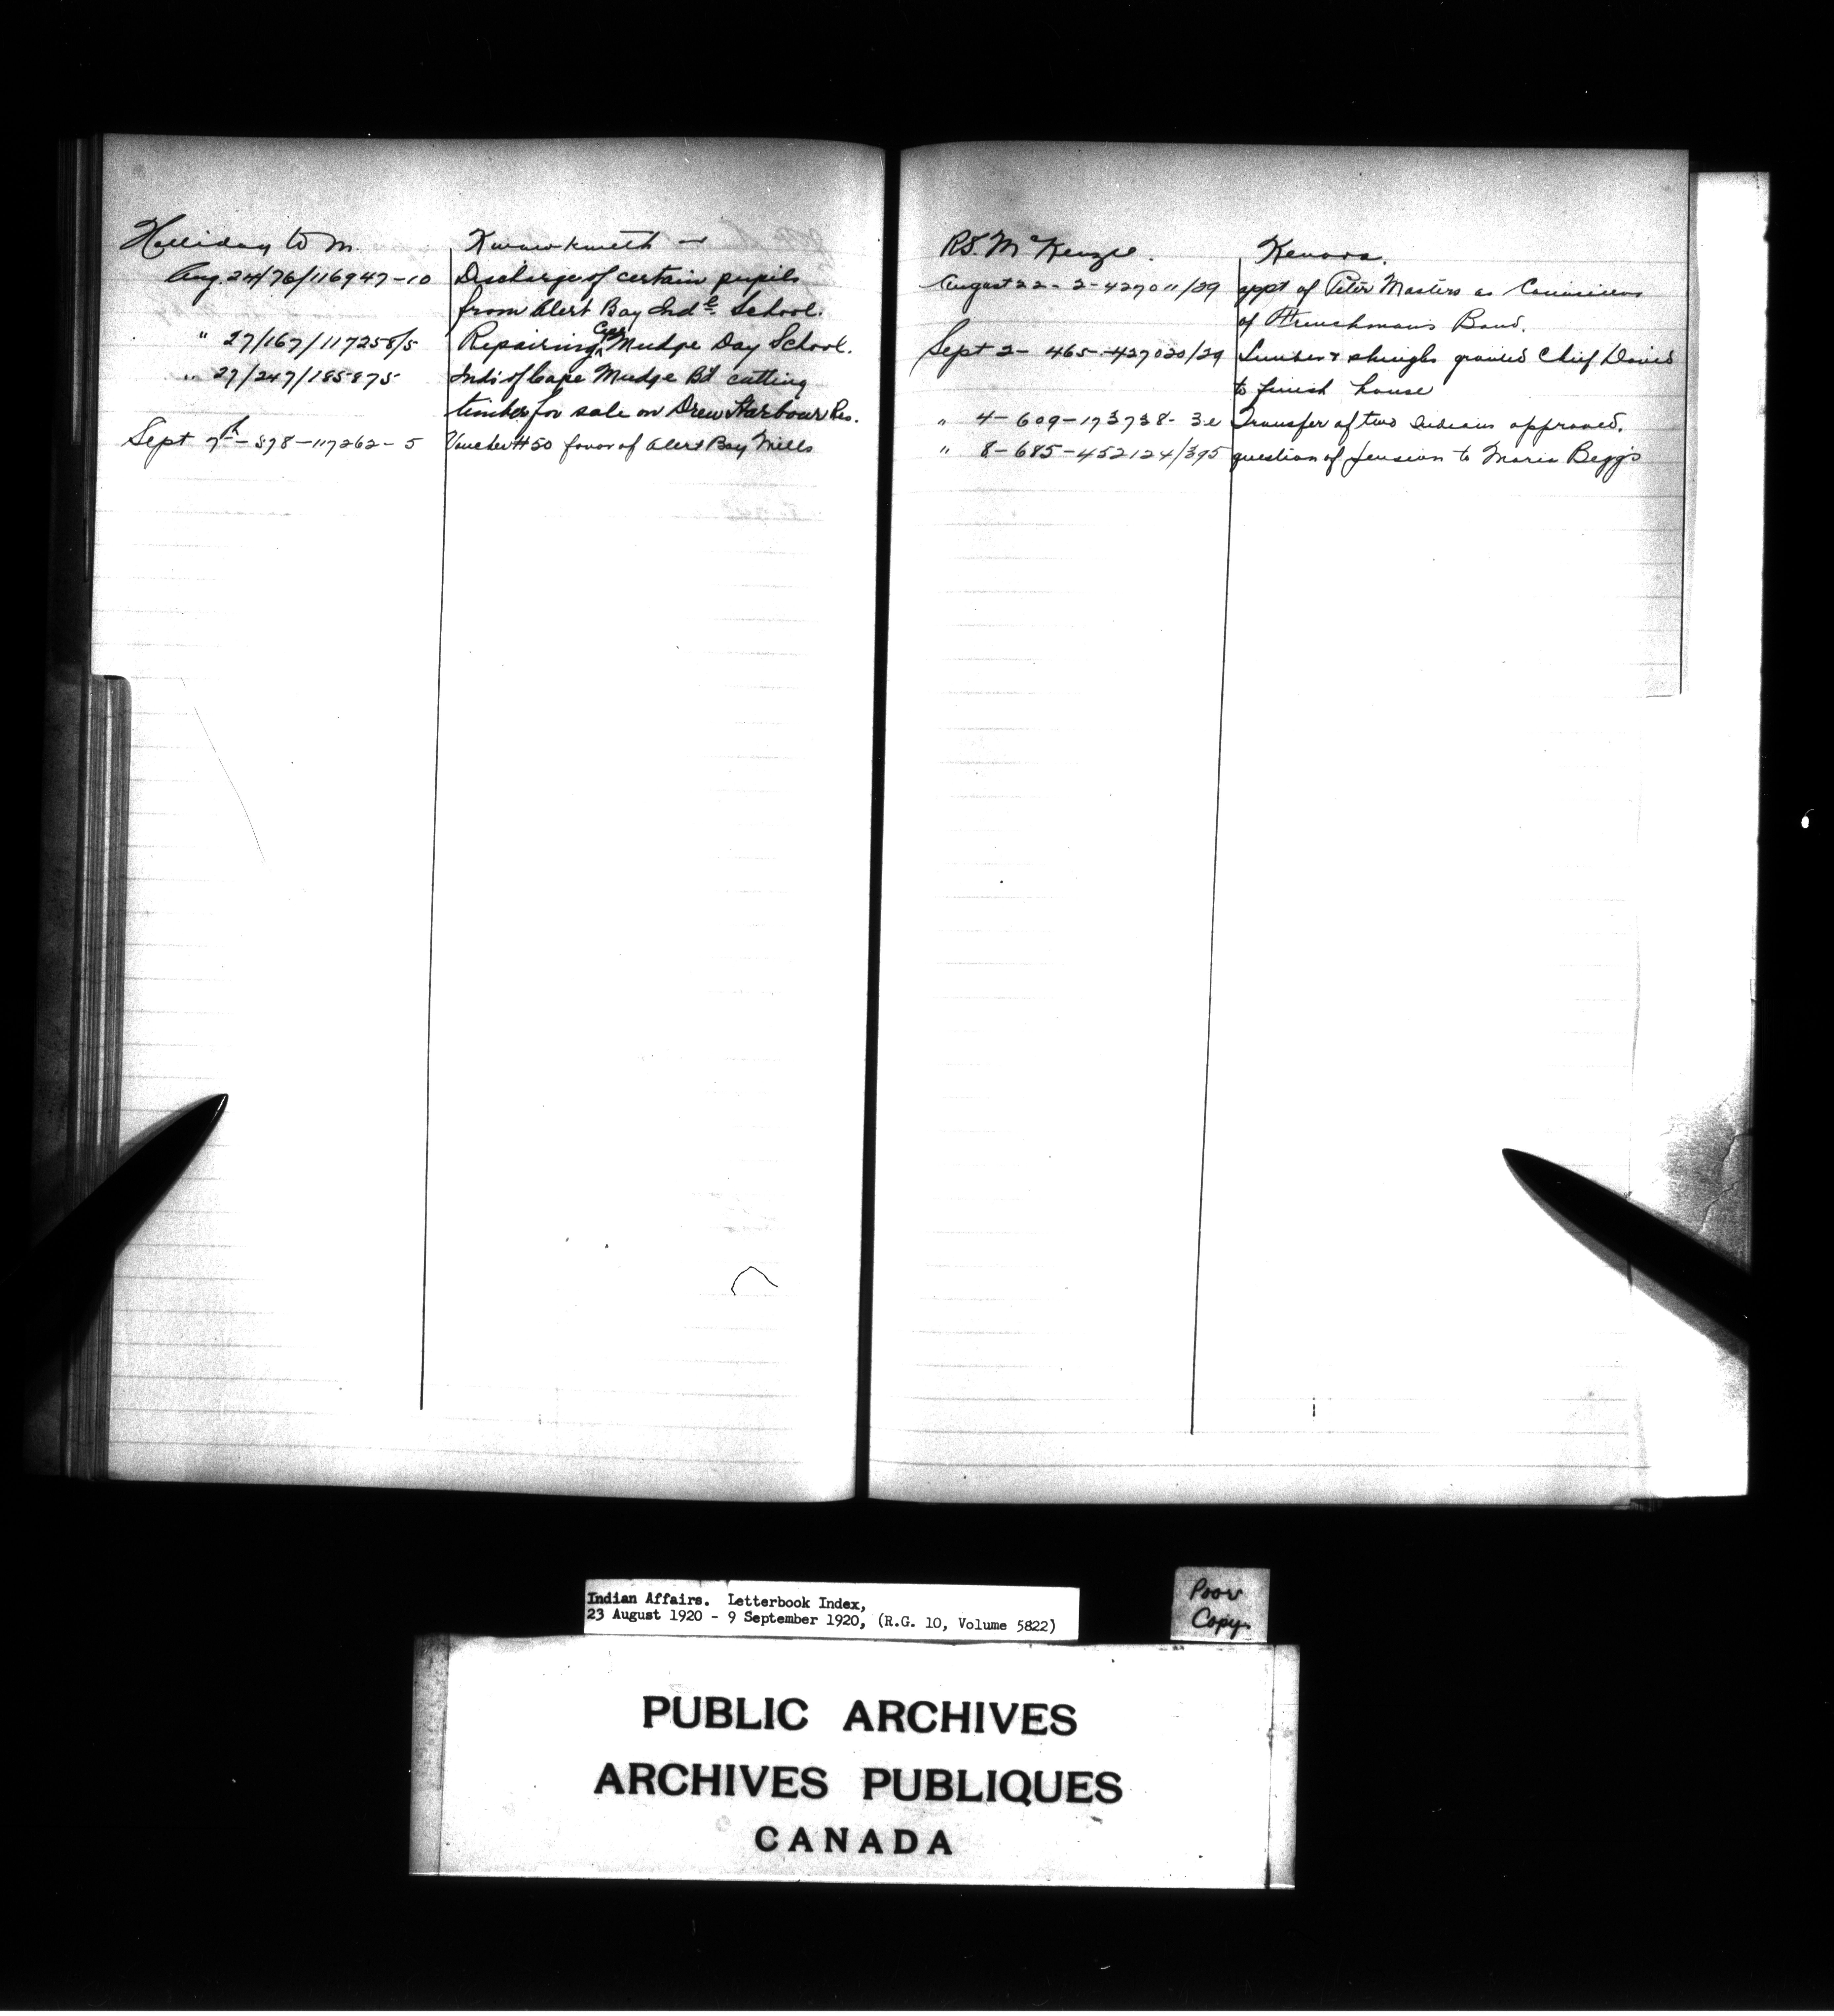 Halliday W. M.
Kwawkewlth —
Aug. 24/76/116947-10 Discharge of certain pupils
from Alert Bay Ind'l School.
" 27/167/117258/5 Repairing Cape Mudge Day School.
" 27/247/185875 Inds of Cape Mudge Bd cutting
timber for sale on Drew Harbour Res.
Sept 7th - 598-117262-5 Voucher #50 favor of Alert Bay Mills
R.S. McKenzie.
Kenora.
August 22 - 2-427011/29 appt of Peter Masters as Councillor
of Frenchman's Band.
Sept 2 - 465-427020/29 Lumber & shingles granted Chief David
to finish house
" 4 - 609-173738-3e Transfer of two Indians approved.
" 8 - 685-452124/395 question of pension to Maria Beggs
Indian Affairs. Letterbook Index,
23 August 1920 - 9 September 1920, (R.G. 10, Volume 5822)
Poor
Copy.
PUBLIC ARCHIVES
ARCHIVES PUBLIQUES
CANADA